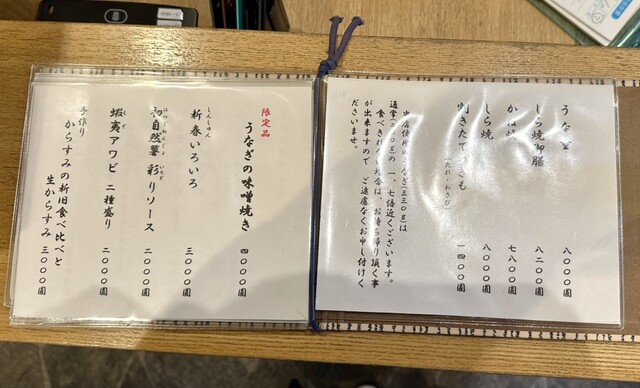 うな重 八〇〇〇圓
しら焼御膳 八二〇〇圓
かば焼 七八〇〇圓
しら焼 八〇〇〇圓
(たれ・わさび) 一四〇〇圓
通常の一、七倍近くございます。
食べきれない場合は、お持ち帰り頂く事
が出来ますので、ご遠慮なくお申し付けく
ださいませ。
限定品
うなぎの味噌焼き 四〇〇〇圓
しんしゅん
新春いろいろ 三〇〇〇圓
自然薯 彩りソース 二〇〇〇圓
蝦夷アワビ 二種盛り 二〇〇〇圓
手作り
からすみの新旧食べ比べと
生からすみ 三〇〇〇圓